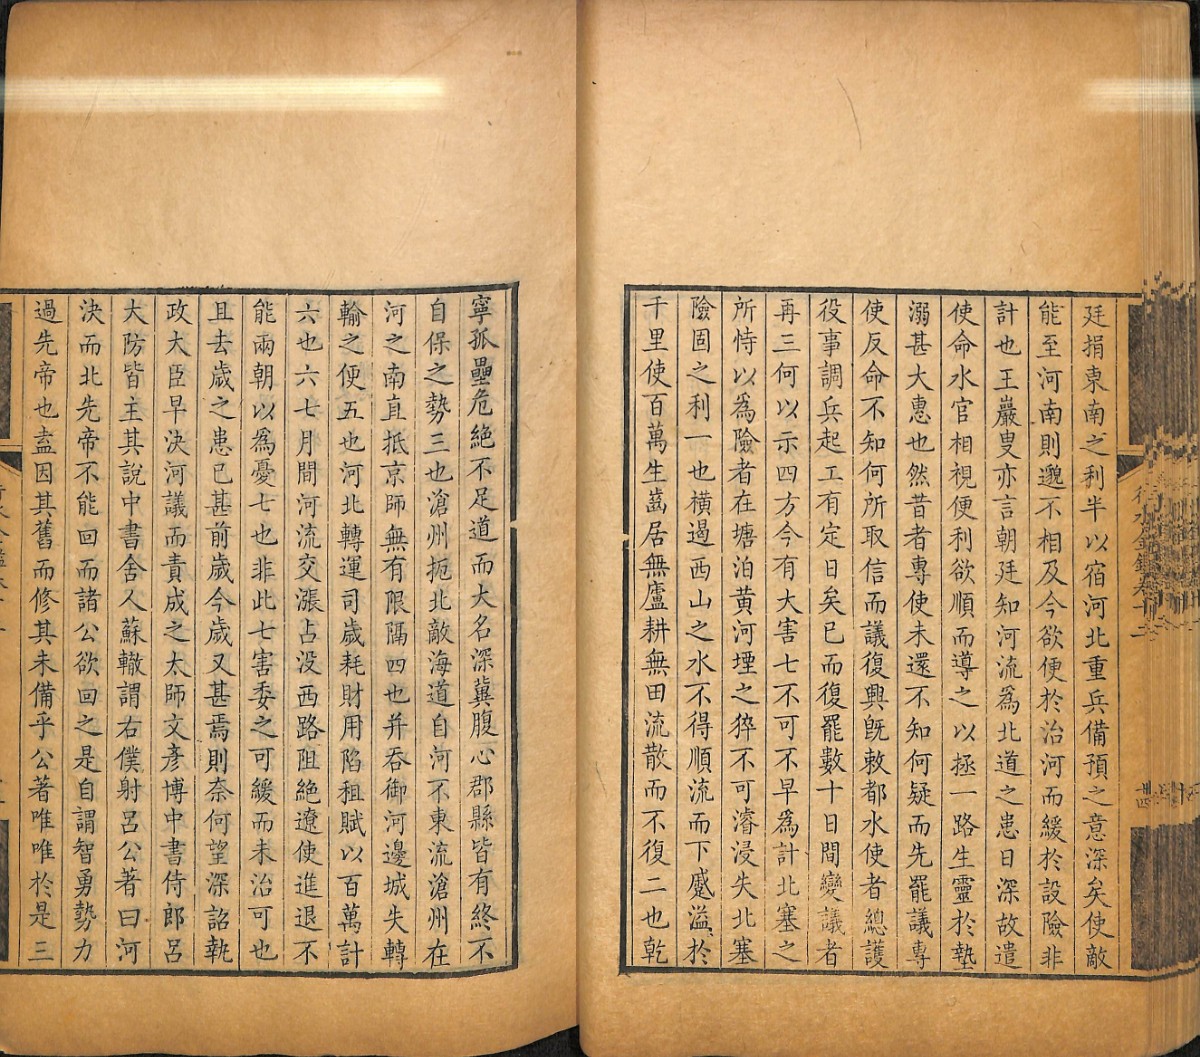 廷捐東南之利半以宿河北重兵備預之意深矣使敵
能至河南則邈不相及今欲便於治河而緩於設險非
計也王巖叟亦言朝廷知河流為北道之患日深故遣
使命水官相視便利欲順而導之以拯一路生靈於墊
溺甚大惠也然昔者專使未還不知何疑而先罷議專
使反命不知何所取信而議復興旣敕都水使者總護
役事調兵起工有定日矣已而復罷數十日間變議者
再三何以示四方今有大害七不可不早為計北塞之
所恃以為險者在塘泊黃河堙之猝不可濬浸失北塞
險固之利一也橫遏西山之水不得順流而下蹙溢於
千里使百萬生齒居無廬耕無田流散而不復二也乾
寧孤壘危絕不足道而大名深冀腹心郡縣皆有終不
自保之勢三也滄州扼北敵海道自河不東流滄州在
河之南直抵京師無有限隔四也并吞御河邊城失轉
輸之便五也河北轉運司歲耗財用陷租賦以百萬計
六也六七月間河流交漲占没西路阻絕遼使進退不
能兩朝以為憂七也非此七害委之可緩而未治可也
且去歲之患已甚前歲今歲又甚焉則奈何望深詔執
政大臣早決河議而責成之太師文彥博中書侍郎呂
大防皆主其說中書舍人蘇轍謂右僕射呂公著曰河
決而北先帝不能回而諸公欲回之是自謂智勇勢力
過先帝也盍因其舊而修其未備乎公著唯唯於是三